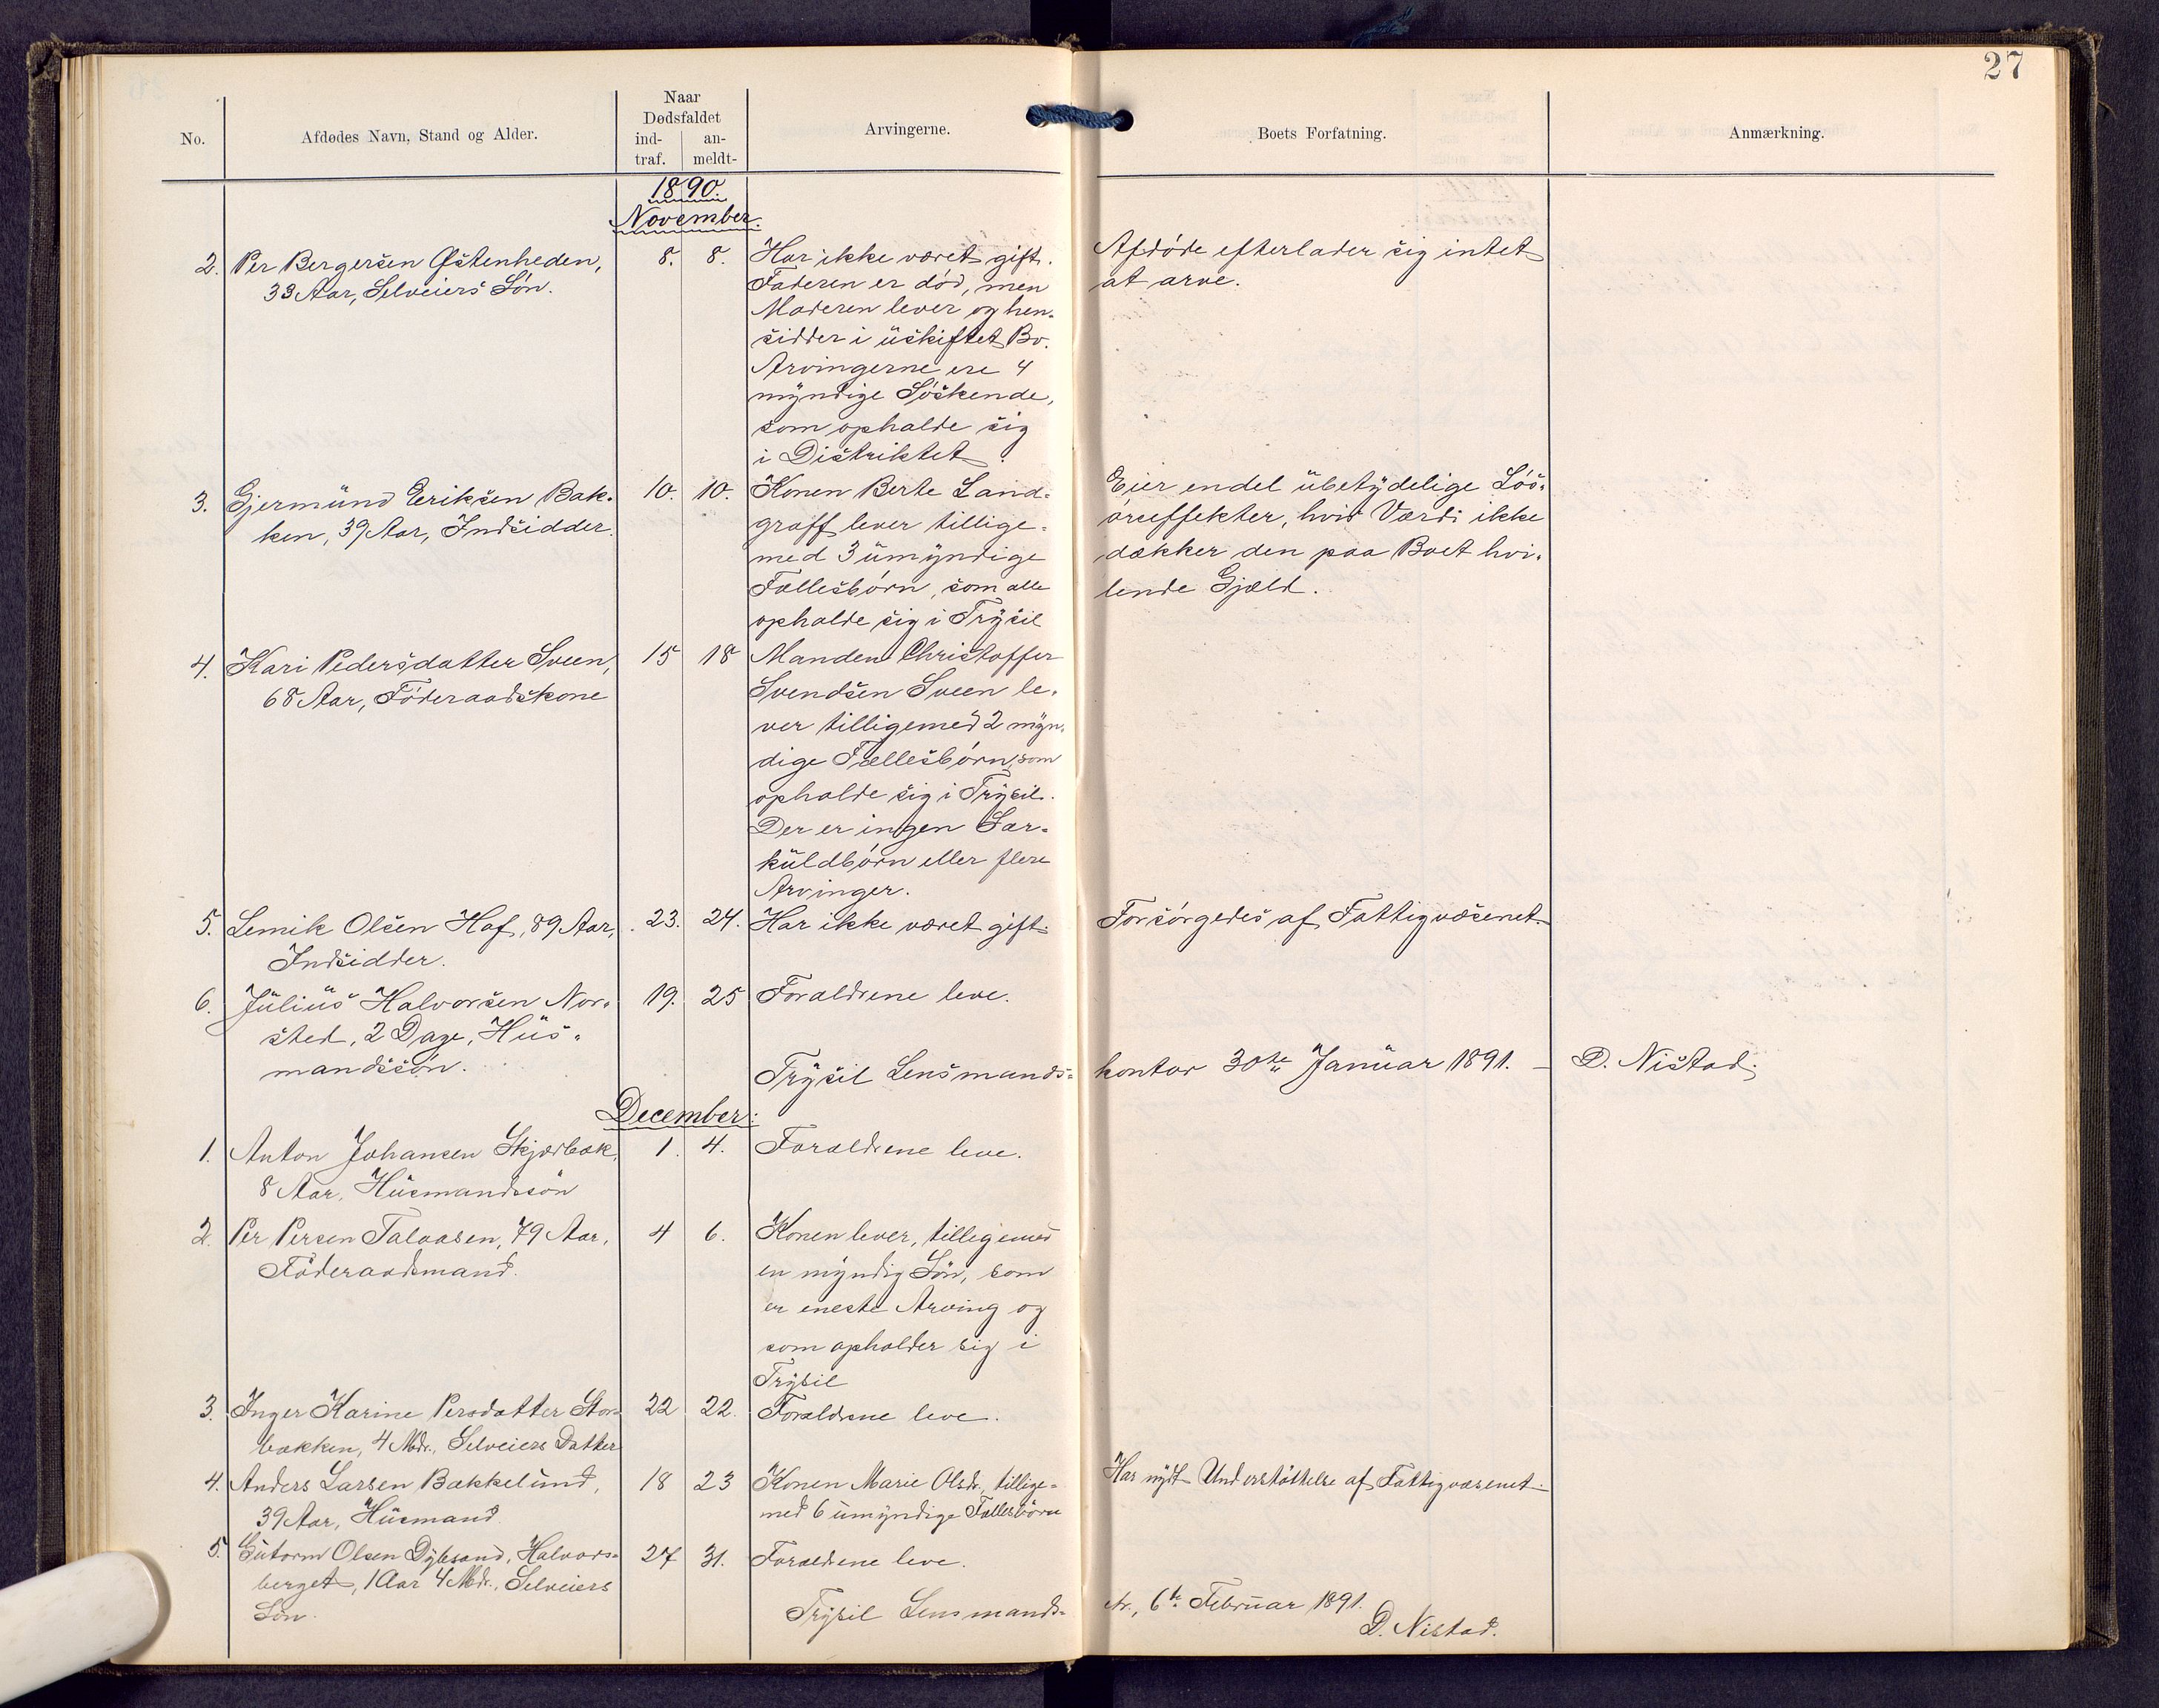 27
No.
Afdødes Navn, Stand og Alder.
Naar
Dødsfaldet
ind-
traf.
an-
meldt-
Arvingerne.
Boets Forfatning.
Anmærkning.
1890.
November.
2. Per Bergersen Østenheden,
33 Aar, Selveiers Søn.
8. 8.
Har ikke været gift.
Faderen er død, men
Moderen lever og hen-
sidder i uskiftet Bo.
Arvingerne ere 4
myndige Søskende,
som opholde sig
i Distriktet.
Afdøde efterlader sig intet
at arve.
3. Gjermund Eriksen Bak-
ken, 39 Aar, Indsidder.
10. 10.
Konen Berte Land-
graff lever tillige-
med 3 umyndige
Fællesbørn, som alle
opholde sig i Trysil
Eier endel ubetydelige Løs-
øreeffekter, hvis Værdi ikke
dækker den paa Boet hvi-
lende Gjæld.
4. Kari Pedersdatter Sveen,
68 Aar, Føderaadskone
15 18
Manden Christoffer
Svendsen Sveen le-
ver tilligemed 2 myn-
dige Fællesbørn, som
opholde sig i Trysil.
Der er ingen Sær-
kuldbørn eller flere
Arvinger.
5. Lemik Olsen Hof, 89 Aar,
Indsidder.
23. 24.
Har ikke været gift.
Forsørgedes af Fattigvæsenet.
6. Julius Halvorsen Nor-
sted, 2 Dage, Hus-
mandssøn.
19. 25
Forældrene leve.
Trysil Lensmands-
kontor 30te Januar 1891. — D. Nistad.
December.
1. Anton Johansen Skjærbæk,
8 Aar, Husmandssøn
1. 4.
Forældrene leve.
2. Per Persen Talaasen, 79 Aar,
Føderaadsmand.
4 6.
Konen lever, tilligemed
en myndig Søn, som
er eneste Arving og
som opholder sig i
Trysil
3. Inger Karine Persdatter Stor-
bækken, 4 Mdr., Selveiers Datter
22 22.
Forældrene leve.
4. Anders Larsen Bækkelund,
39 Aar, Husmand
18 23
Konen Marie Olsdr., tillige-
med 6 umyndige Fællesbørn
Har nydt Understøttelse af Fattigvæsenet.
5. Gutorm Olsen Dybsand, Halvors-
berget, 1 Aar 4 Mdr., Selveiers
Søn.
27 31.
Forældrene leve.
Trysil Lensmands-
ktr., 6te Februar 1891.
D. Nistad.